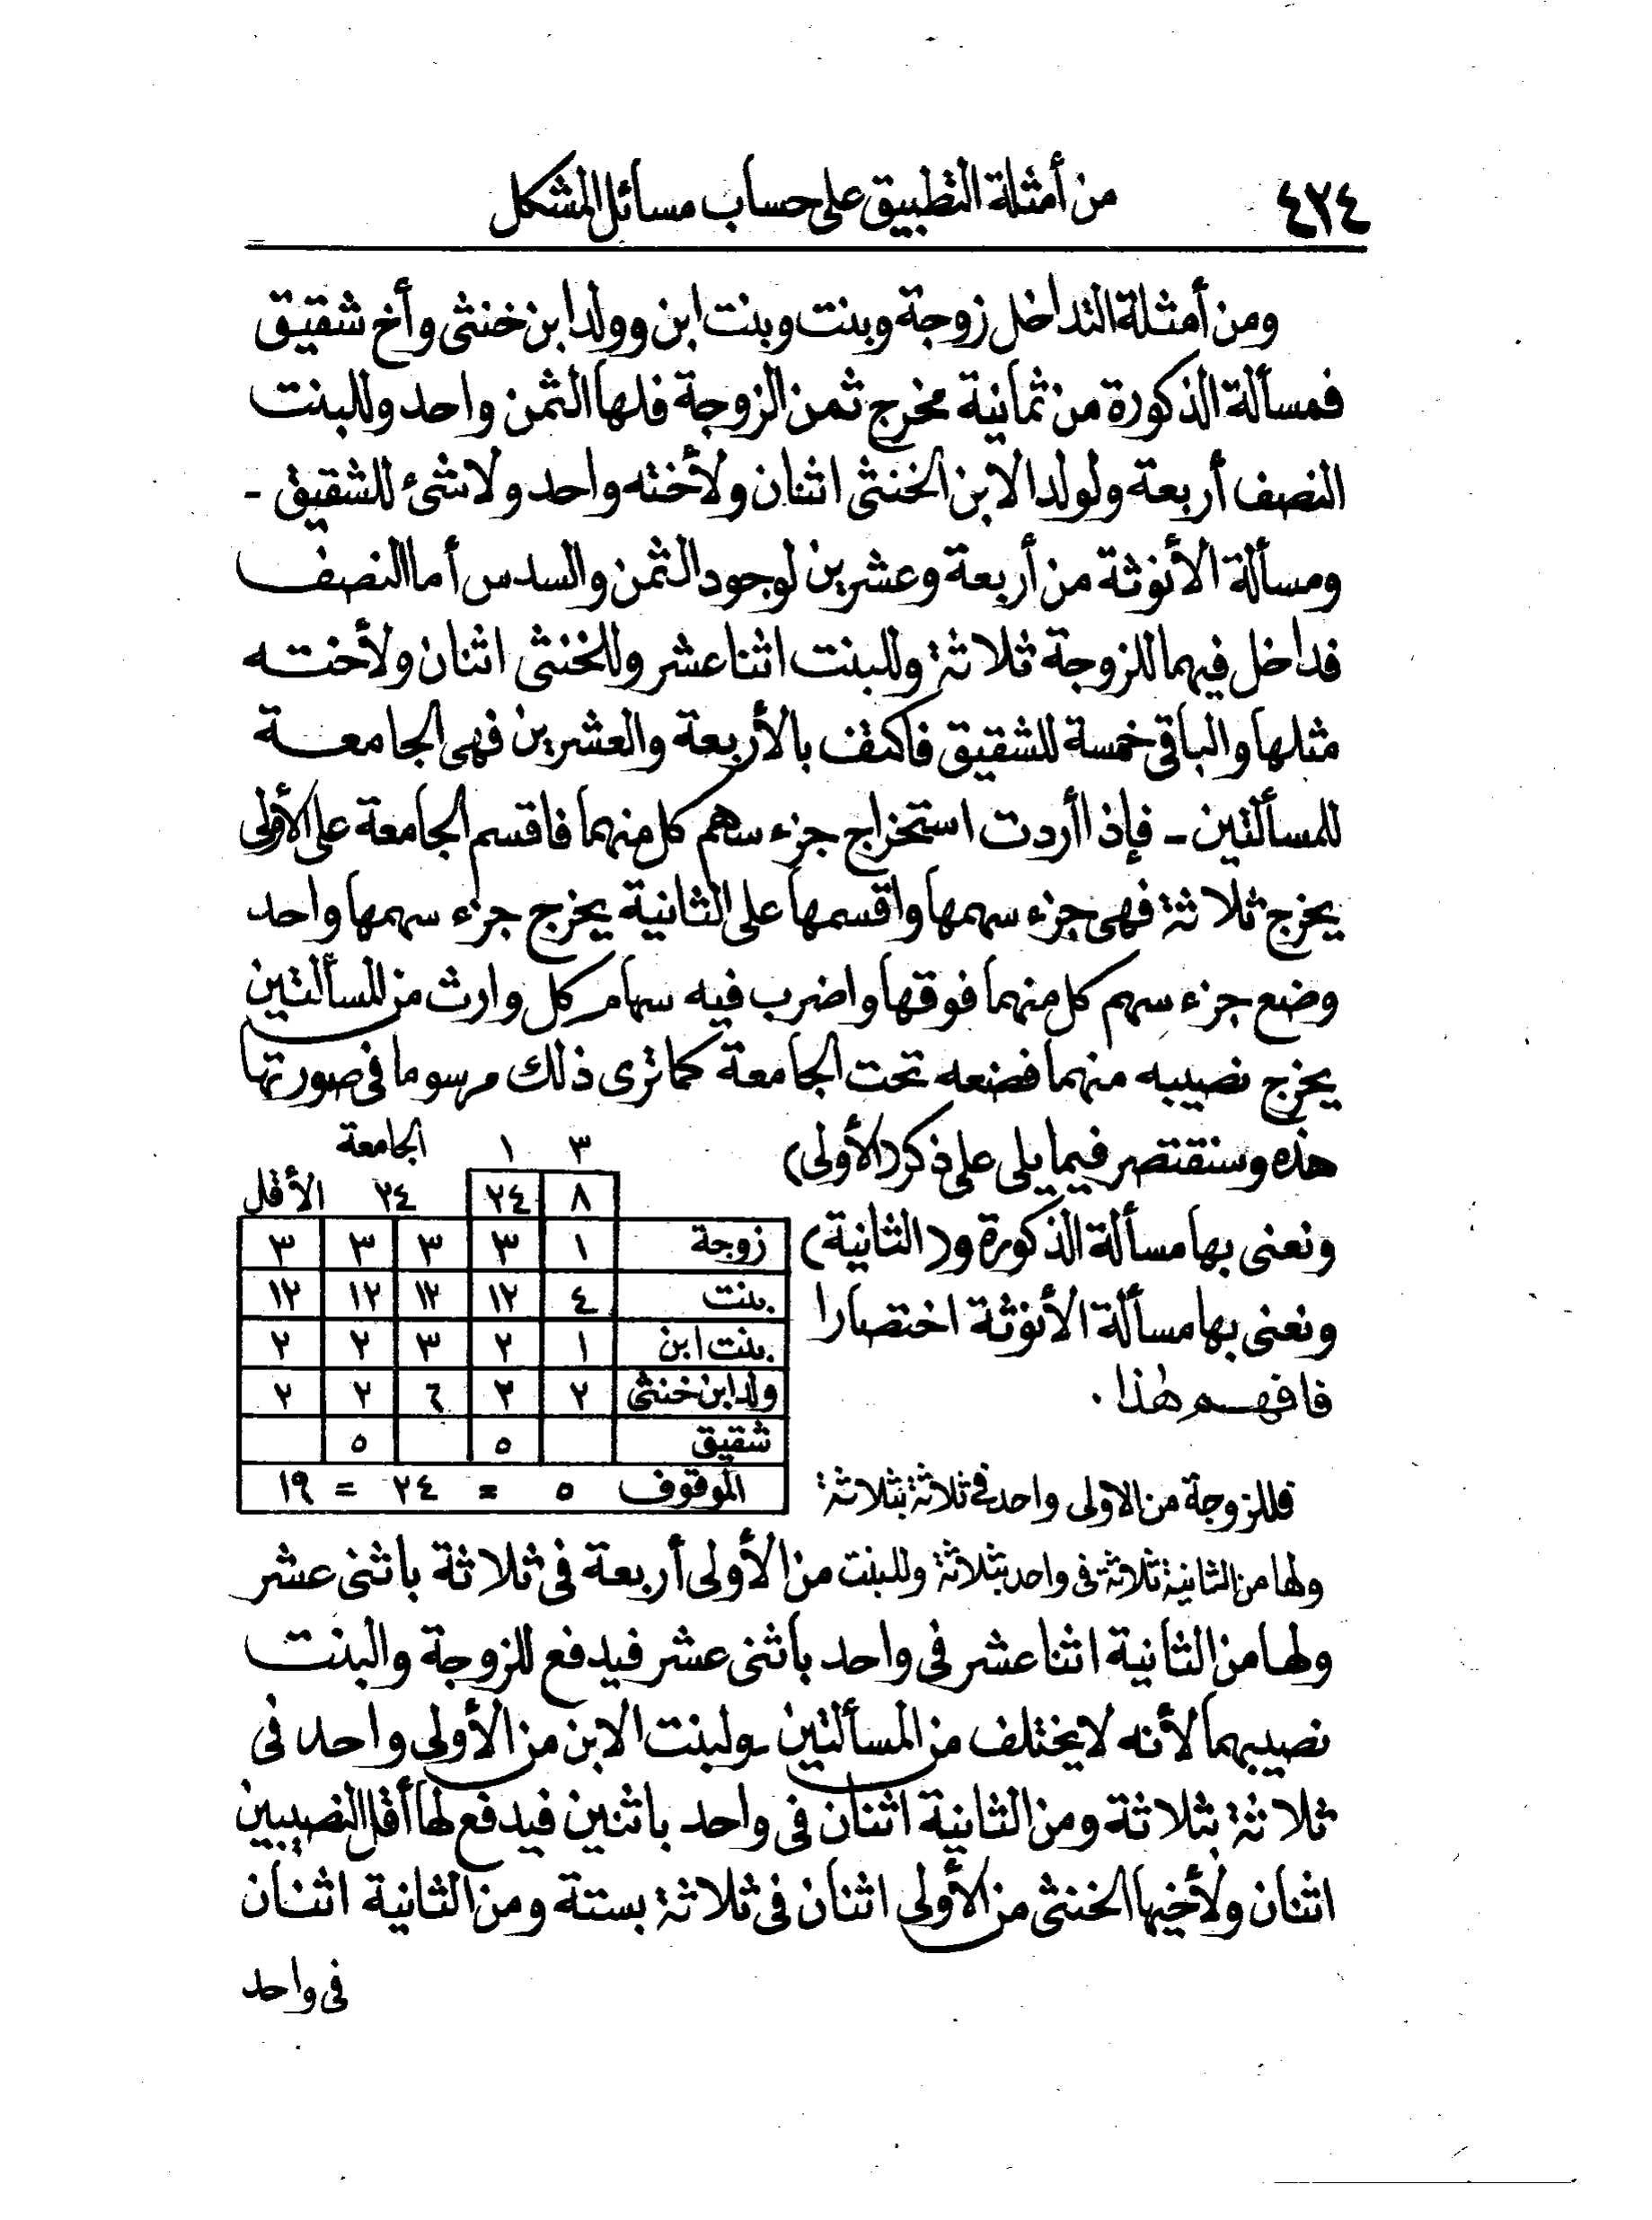 ٤٢٤ من أمثلة التطبيق على حساب مسائل المشكل
ومن أمثلة التداخل زوجة وبنت وبنت ابن وولد ابن خنثى وأخ شقيق
فمسألة الذكورة من ثمانية مخرج ثمن الزوجة فلها الثمن واحد وللبنت
النصف أربعة ولولد الابن الخنثى اثنان ولأخته واحد ولا شئ للشقيق -
ومسألة الأنوثة من أربعة وعشرين لوجود الثمن والسدس أما النصف
فداخل فيهما للزوجة ثلاثة وللبنت اثنا عشر وللخنثى اثنان ولأخته
مثلها والباقى خمسة للشقيق فاكتف بالأربعة والعشرين فهى الجامعة
للمسألتين - فإذا أردت استخراج جزء سهم كل منهما فاقسم الجامعة على الأولى
يخرج ثلاثة فهى جزء سهمها واقسمها على الثانية يخرج جزء سهمها واحد
وضع جزء سهم كل منهما فوقها واضرب فيه سهام كل وارث من المسألتين
يخرج نصيبه منهما فضعه تحت الجامعة كما ترى ذلك مرسوما فى صورتها
هذه وسنقتصر فيما يلى على ذكر (الأولى)
ونعنى بها مسألة الذكورة و(الثانية)
ونعنى بها مسألة الأنوثة اختصارا
فافهم هذا .
٣ ١ الجامعة
٨ ٢٤ ٢٤ الأقل
زوجة ١ ٣ ٣ ٣ ٣
بنت ٤ ١٢ ١٢ ١٢ ١٢
بنت ابن ١ ٢ ٣ ٢ ٢
ولد ابن خنثى ٢ ٢ ٦ ٢ ٢
شقيق ٥ ٥
الموقوف ٥ = ٢٤ = ١٩
فللزوجة من الأولى واحد فى ثلاثة بثلاثة
ولها من الثانية ثلاثة فى واحد بثلاثة وللبنت من الأولى أربعة فى ثلاثة باثنى عشر
ولها من الثانية اثنا عشر فى واحد باثنى عشر فيدفع للزوجة والبنت
نصيبهما لأنه لا يختلف من المسألتين - ولبنت الابن من الأولى واحد فى
ثلاثة بثلاثة ومن الثانية اثنان فى واحد باثنين فيدفع لها أقل النصيبين
اثنان ولأخيها الخنثى من الأولى اثنان فى ثلاثة بستة ومن الثانية اثنان
فى واحد